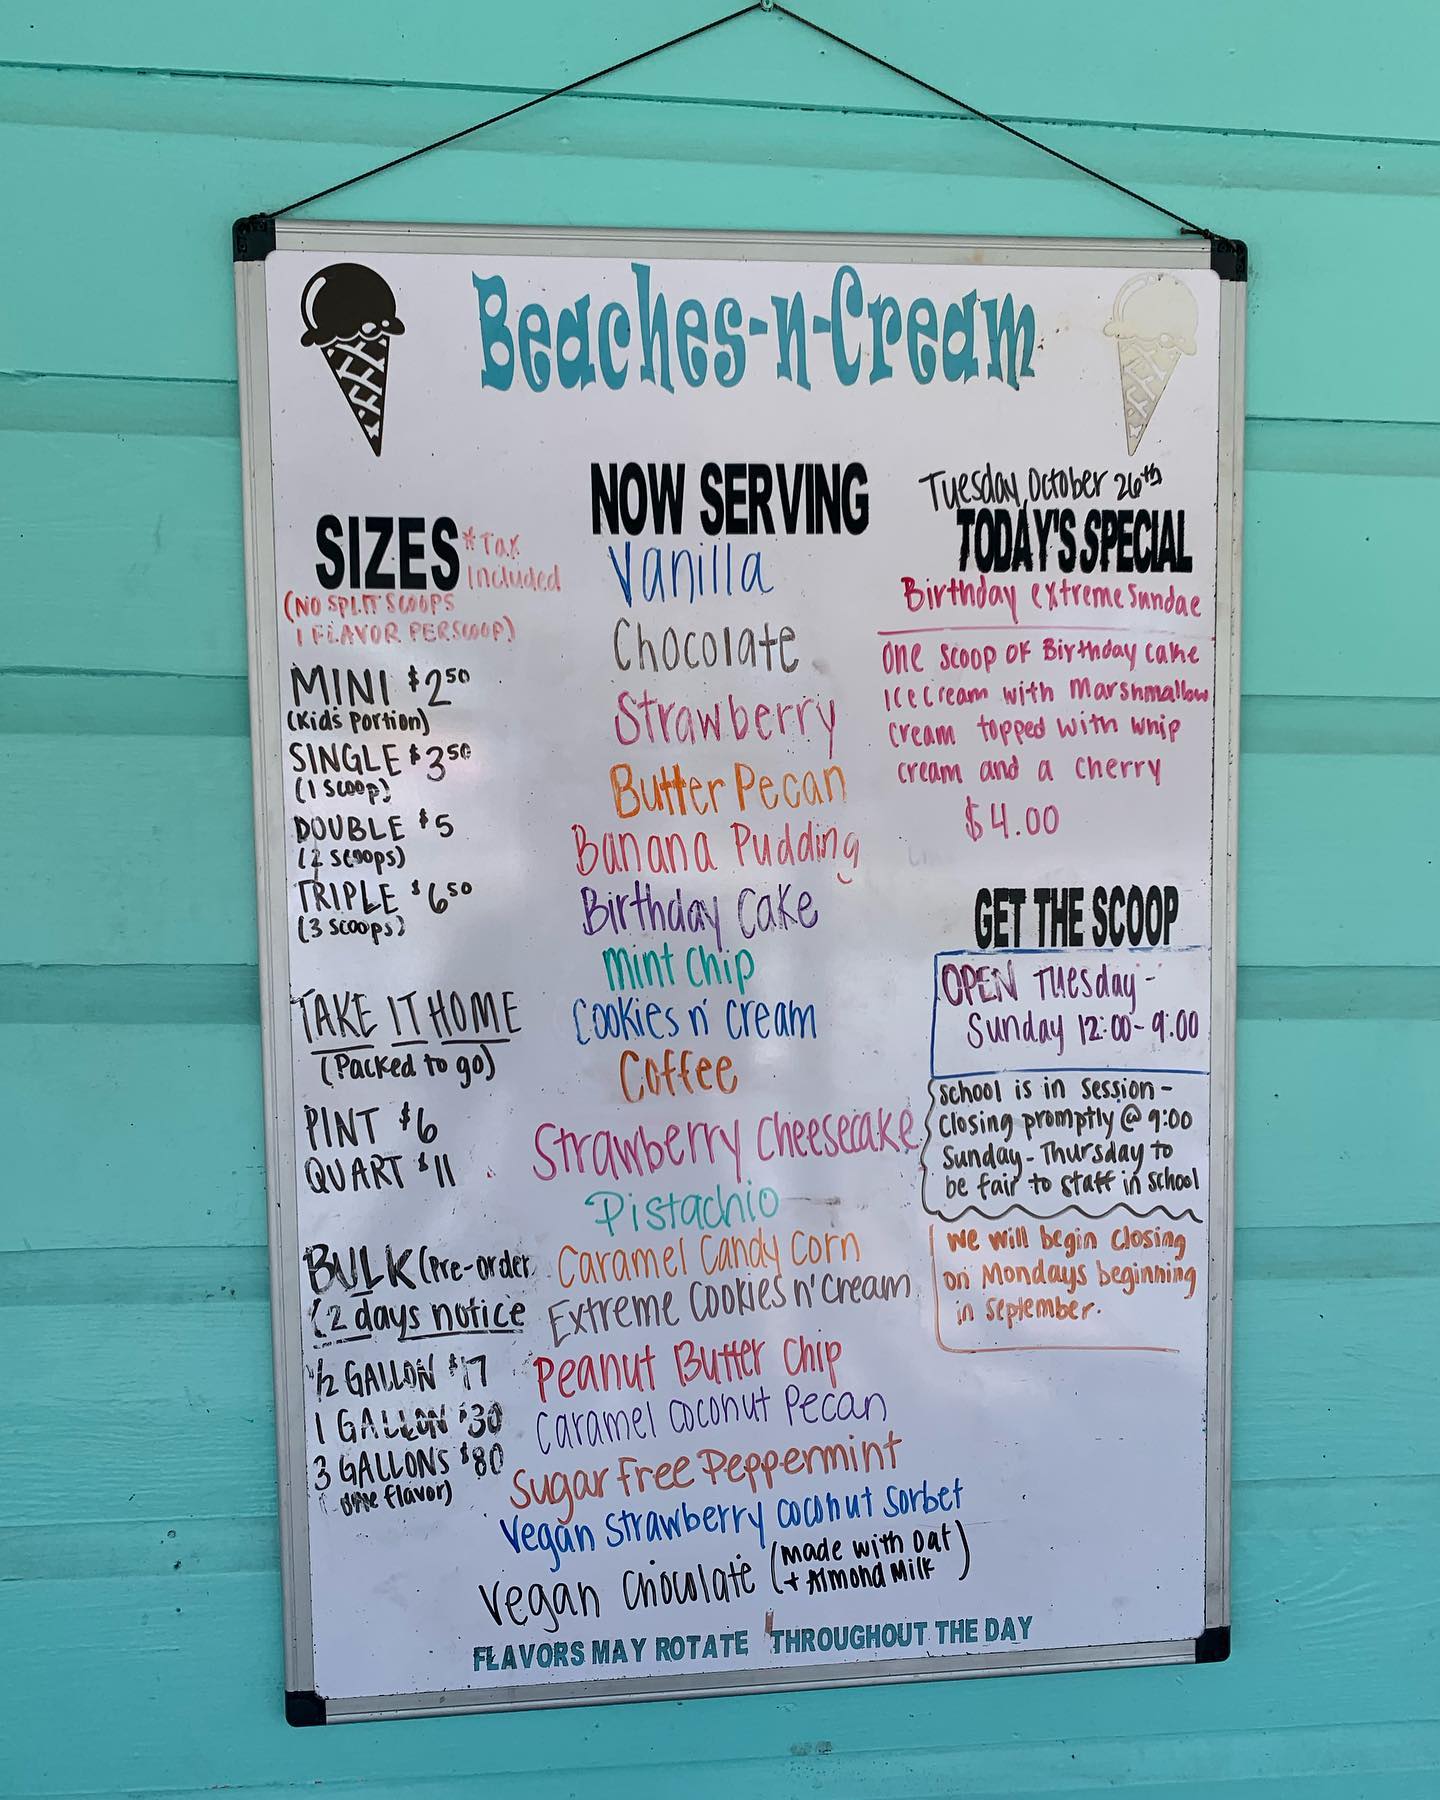 Beaches-n-Cream
SIZES *Tax
Included
(NO SPLIT SCOOPS
1 FLAVOR PER SCOOP)
MINI $2.50
(Kids Portion)
SINGLE $3.50
(1 Scoop)
DOUBLE $5
(2 scoops)
TRIPLE $6.50
(3 scoops)
TAKE IT HOME
(Packed to go)
PINT $6
QUART $11
BULK (Pre-order
(2 days notice
1/2 GALLON $17
1 GALLON $30
3 GALLONS $80
(one flavor)
NOW SERVING
Vanilla
Chocolate
Strawberry
Butter Pecan
Banana Pudding
Birthday Cake
Mint Chip
Cookies n' Cream
Coffee
Strawberry Cheesecake
Pistachio
Caramel Candy Corn
Extreme Cookies n' Cream
Peanut Butter Chip
Caramel Coconut Pecan
Sugar Free Peppermint
Vegan Strawberry Coconut Sorbet
Vegan Chocolate (made with Oat
+ Almond Milk)
Tuesday, October 26th
TODAY'S SPECIAL
Birthday extreme Sundae
One scoop of Birthday cake
Ice cream with Marshmallow
Cream topped with whip
cream and a cherry
$4.00
GET THE SCOOP
OPEN Tuesday -
Sunday 12:00-9:00
School is in session -
closing promptly @ 9:00
Sunday - Thursday to
be fair to staff in school
We will begin closing
on Mondays beginning
in September.
FLAVORS MAY ROTATE THROUGHOUT THE DAY